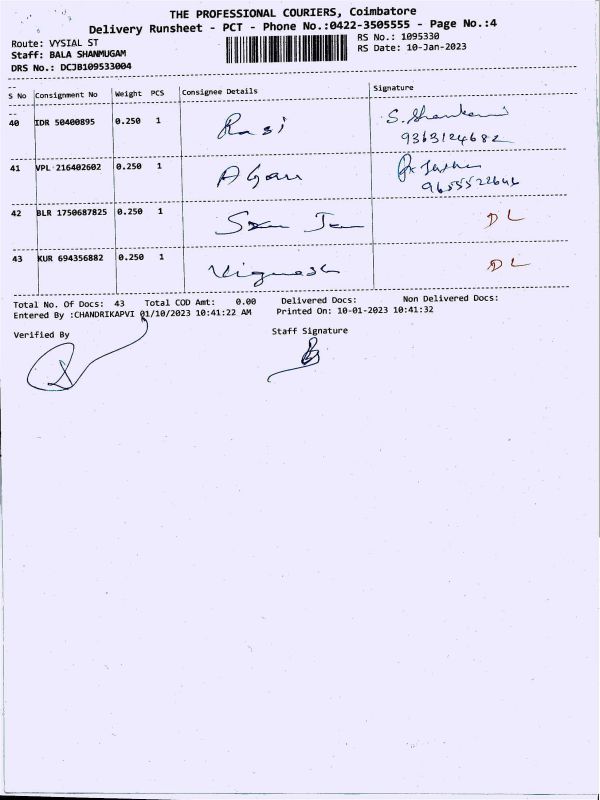 THE PROFESSIONAL COURIERS, Coimbatore
Delivery Runsheet - PCT - Phone No.:0422-3505555 - Page No.:4
Route: VYSIAL ST
RS No.: 1095330
Staff: BALA SHANMUGAM
RS Date: 10-Jan-2023
DRS No.: DCJB109533004
S No Consignment No Weight PCS Consignee Details Signature
40 IDR 50400895 0.250 1 Rasi S. Shankari
9363124682
41 VPL 216402602 0.250 1
42 BLR 1750687825 0.250 1 DL
43 KUR 694356882 0.250 1 Vignesh DL
Total No. Of Docs: 43 Total COD Amt: 0.00 Delivered Docs: Non Delivered Docs:
Entered By :CHANDRIKAPVI 01/10/2023 10:41:22 AM Printed On: 10-01-2023 10:41:32
Verified By Staff Signature